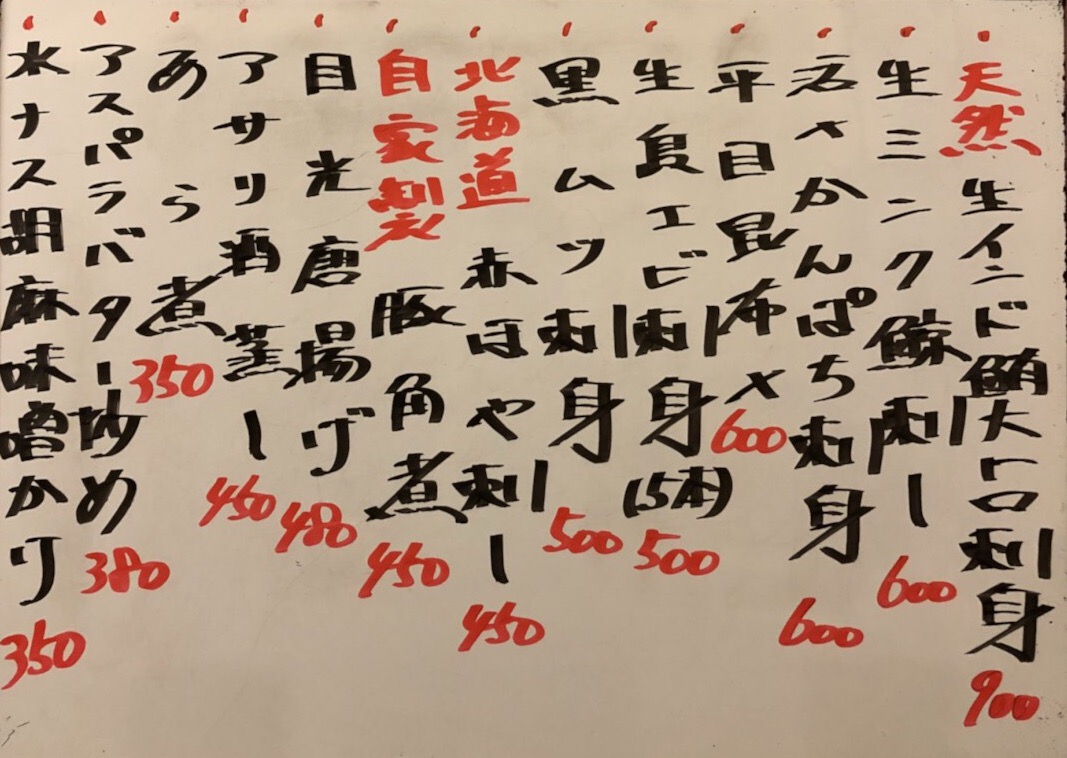 天然生インド鮪大トロ刺身 900
生ミンク鯨刺し 600
活〆かんぱち刺身 600
平目昆布〆 600
生島エビ刺身(5本) 500
黒ムツ刺身 500
北海道赤ほや刺し 450
自家製豚角煮 450
目光唐揚げ 480
アサリ酒蒸し 450
あら煮 350
アスパラバター炒め 380
水ナス胡麻味噌かけ 350